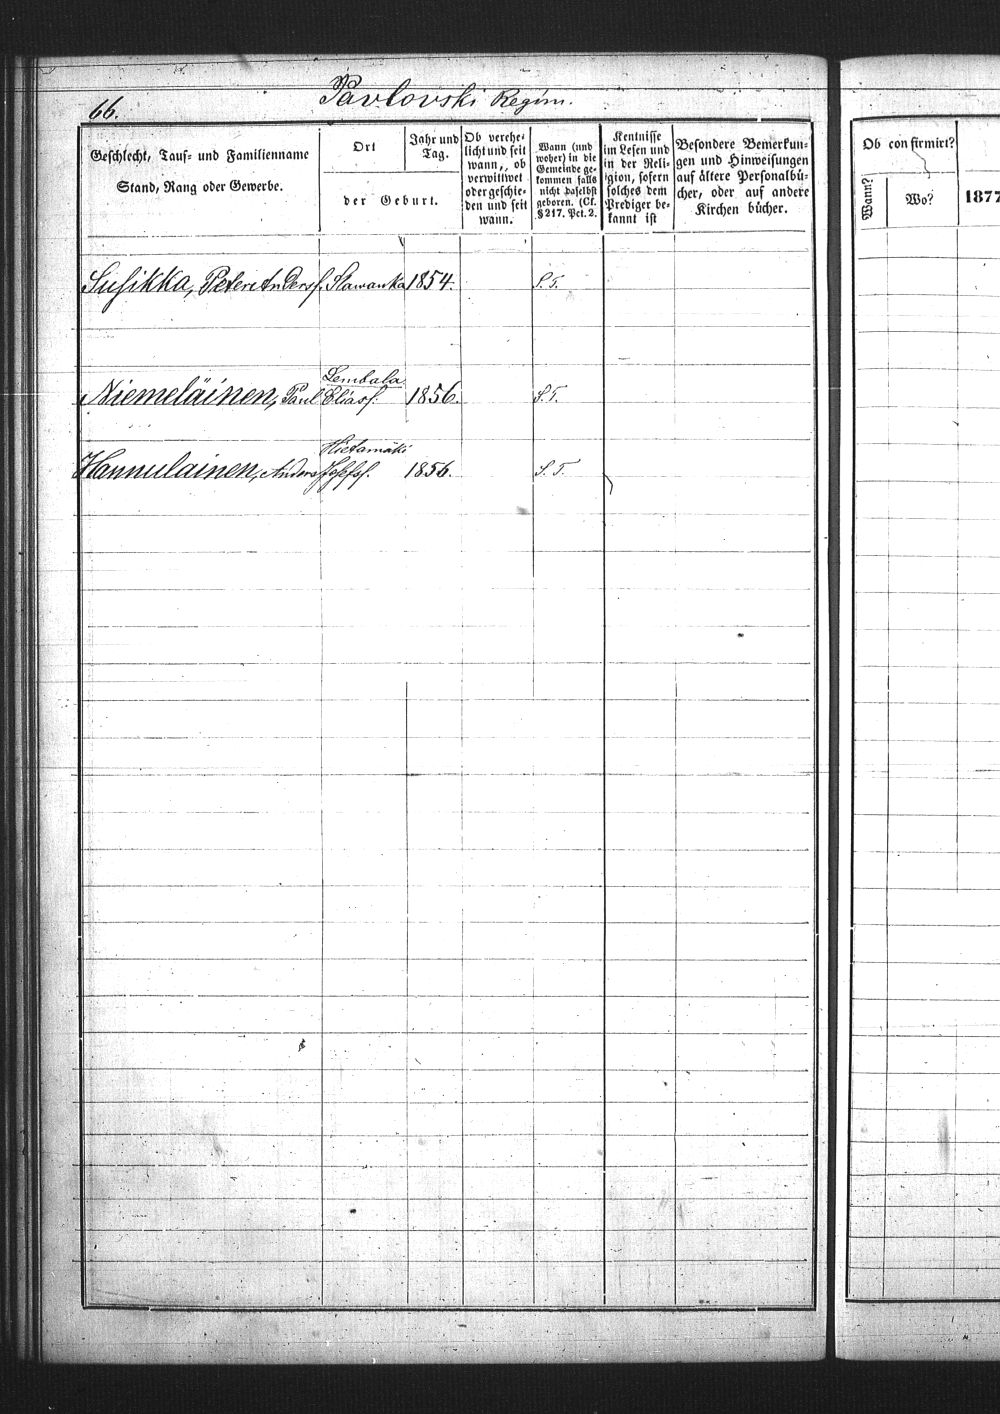 66.
Pavlovski Regim.
Geschlecht, Tauf- und Familienname
Stand, Rang oder Gewerbe.
Ort
Jahr und
Tag.
der Geburt.
Ob verehe-
licht und seit
wann, ob
verwittwet
oder geschie-
den und seit
wann.
Wann (und
woher) in die
Gemeinde ge-
kommen falls
nicht daselbst
geboren. (Cf.
§ 217. Pct. 2.
Kentnisse
im Lesen und
in der Reli-
gion, sofern
solches dem
Prediger be-
kannt ist
Besondere Bemerkun-
gen und Hinweisungen
auf ältere Personalbü-
cher, oder auf andere
Kirchen bücher.
Ob confirmirt?
Wann?
Wo?
1877
Susikka, Peter Andersf. Slawanka 1854. S.T.
Lembala
Niemeläinen, Paul Eliasf. 1856. S.T.
Hietamäki
Hannulainen, Anders Josefsf. 1856. S.T.